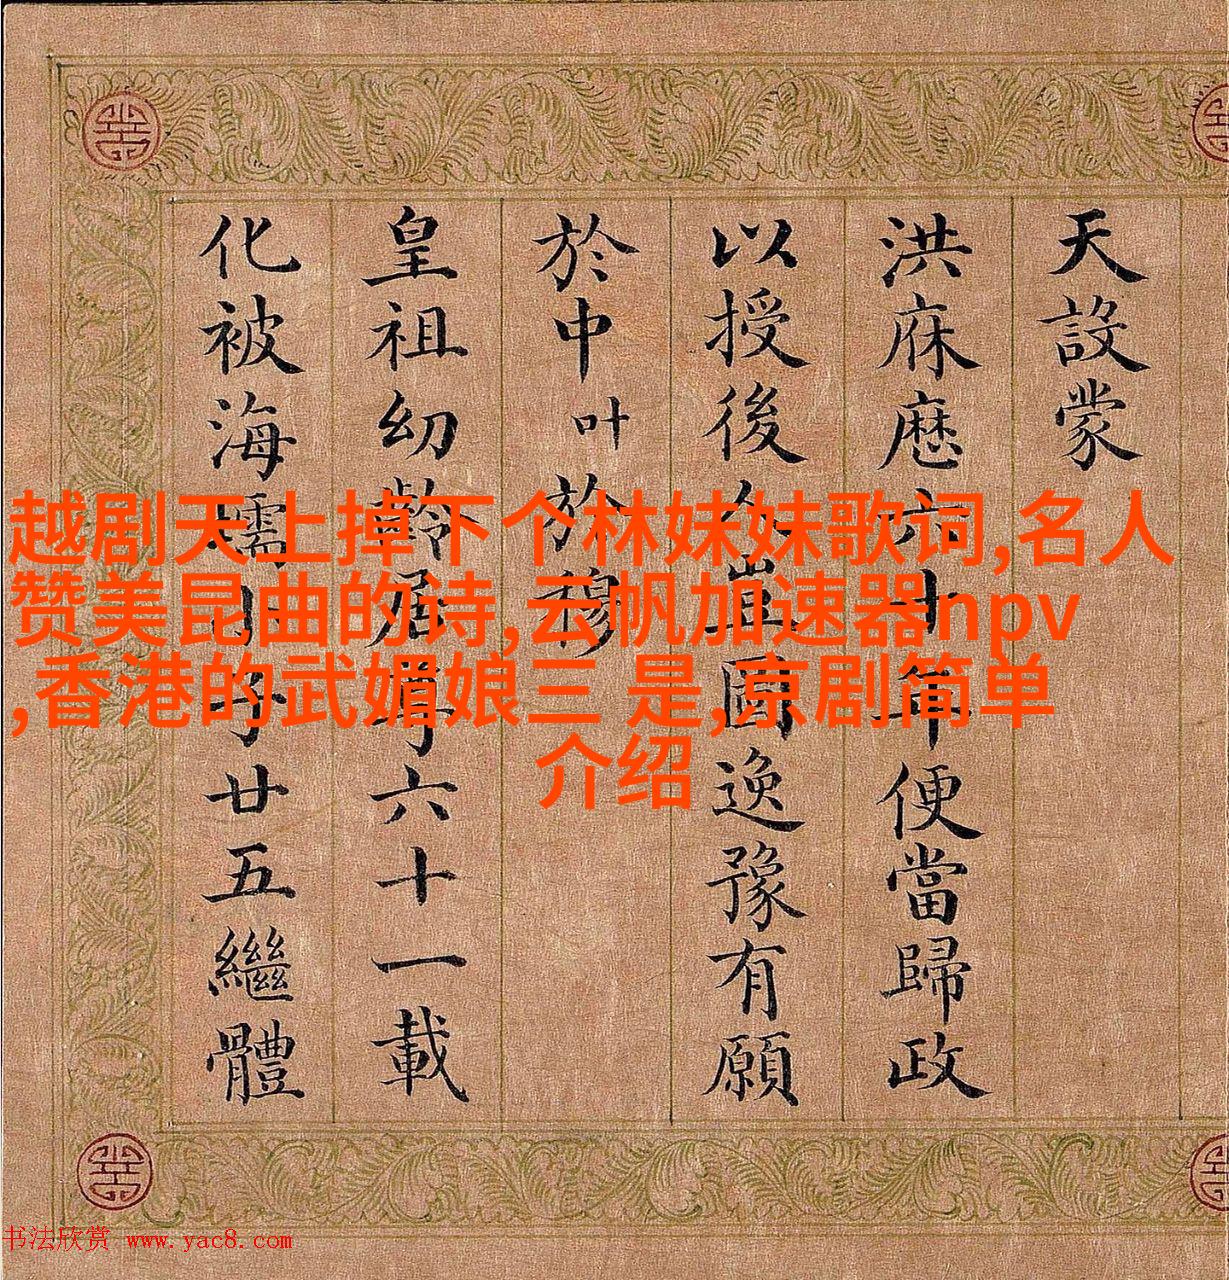 天設蒙
洪庥歷六十年便當歸政
以授後人豈圖逸豫有願
於中叶於穆
皇祖幼齡居尊六十一載
化被海壖小子廿五繼體
越剧天上掉下个林妹妹歌词,名人
赞美昆曲的诗,云帆加速器npv
,香港的武媚娘三 是,京剧简单
介绍
书法欣赏 www.yac8.com